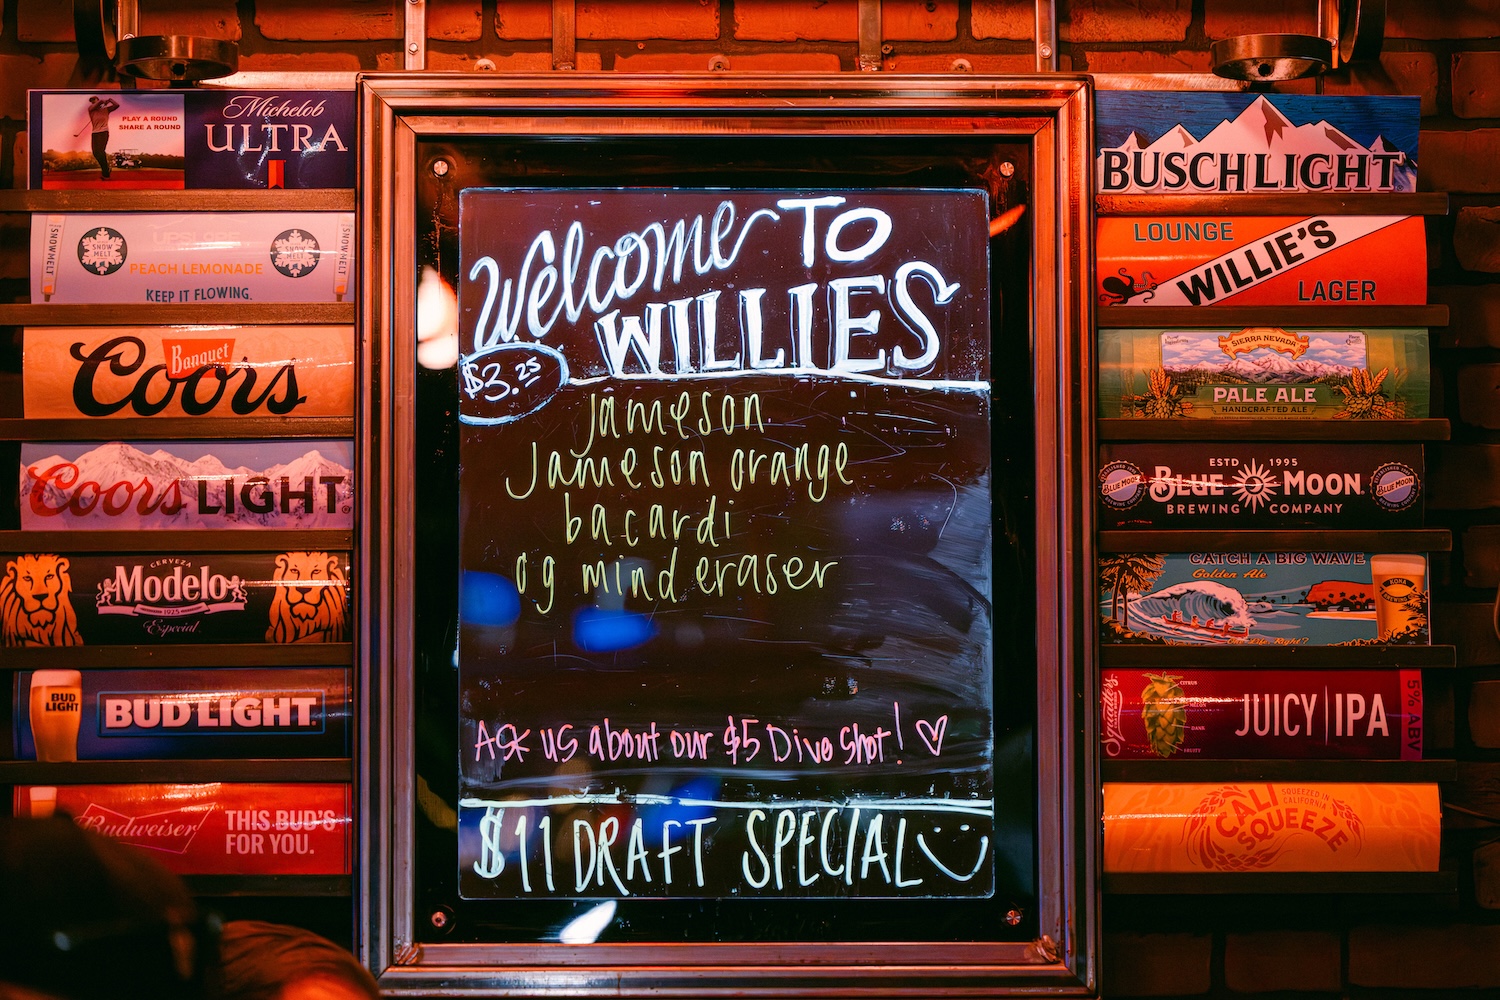 PLAY A ROUND
SHARE A ROUND
Michelob
ULTRA
SNOWMELT
SNOW
MELT
UPSLOPE
PEACH LEMONADE
KEEP IT FLOWING.
SNOW
MELT
SNOWMELT
Banquet
Coors
Coors LIGHT
CERVEZA
Modelo
1925
Especial
BUD
LIGHT
BUD LIGHT
Budweiser
THIS BUD'S
FOR YOU.
Welcome TO
WILLIES
$3.25
Jameson
Jameson orange
bacardi
og mind eraser
Ask us about our $5 Dive Shot!
$11 DRAFT SPECIAL
BUSCH LIGHT
LOUNGE
WILLIE'S
LAGER
SIERRA NEVADA
PALE ALE
HANDCRAFTED ALE
BLUE MOON
ESTD 1995
BLUE MOON
BREWING COMPANY
BLUE MOON
CATCH A BIG WAVE
Golden Ale
KONA
BREWING CO.
Life, Right?
Squatters
CITRUS
MELON
DANK
FRUITY
JUICY | IPA
5% ABV
CALI
SQUEEZE
SQUEEZED IN
CALIFORNIA